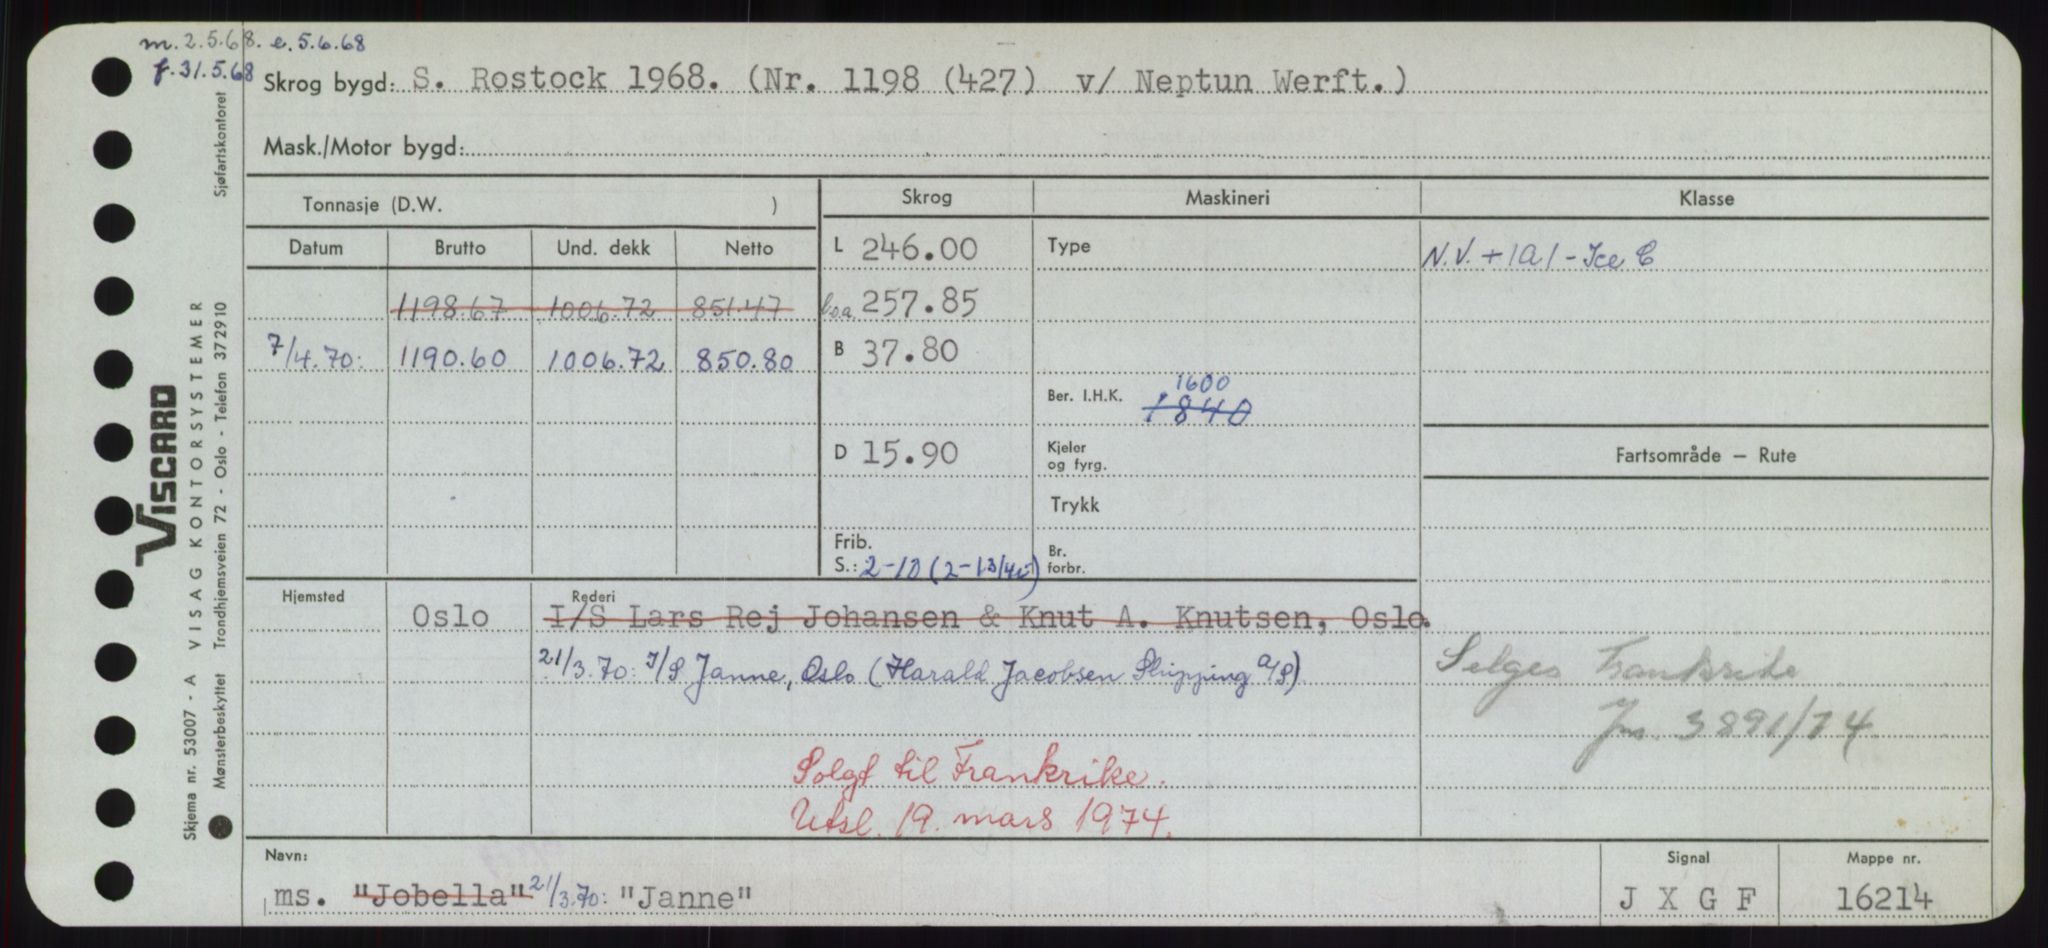 m. 2.5.68. e. 5.6.68
f. 31.5.68
Skrog bygd: S. Rostock 1968. (Nr. 1198 (427) v/ Neptun Werft.)
Mask./Motor bygd:
Tonnasje (D.W. ) Skrog Maskineri Klasse
Datum Brutto Und. dekk Netto L 246.00 Type N.V. + 1A1 - Ice C
1198.67 1006.72 851.47 l.o.a. 257.85
7/4.70: 1190.60 1006.72 850.80 B 37.80
1600
Ber. I.H.K. 1840
D 15.90 Kjeler og fyrg. Fartsområde – Rute
Trykk
Frib.
S.: 2-10 (2-1 3/4") Br. forbr.
Hjemsted Oslo Rederi I/S Lars Rej Johansen & Knut A. Knutsen, Oslo.
21/3.70: I/S Janne, Oslo (Harald Jacobsen Shipping A/S)
Selges Frankrike
Jnr. 3891/74
Solgt til Frankrike.
Utsl. 19. mars 1974.
Navn: Signal Mappe nr.
ms. "Jobella" 21/3.70: "Janne" J X G F 16214
Viscard
VISAG KONTORSYSTEMER
Skjema nr. 53007 - A
Mønsterbeskyttet Trondhjemsveien 72 - Oslo - Telefon 372910 Sjøfartskontoret